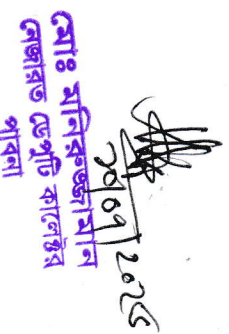 ২০/০৭/২০২৫
মোঃ মনিরুজ্জামান
নেজারত ডেপুটি কালেক্টর
পাবনা